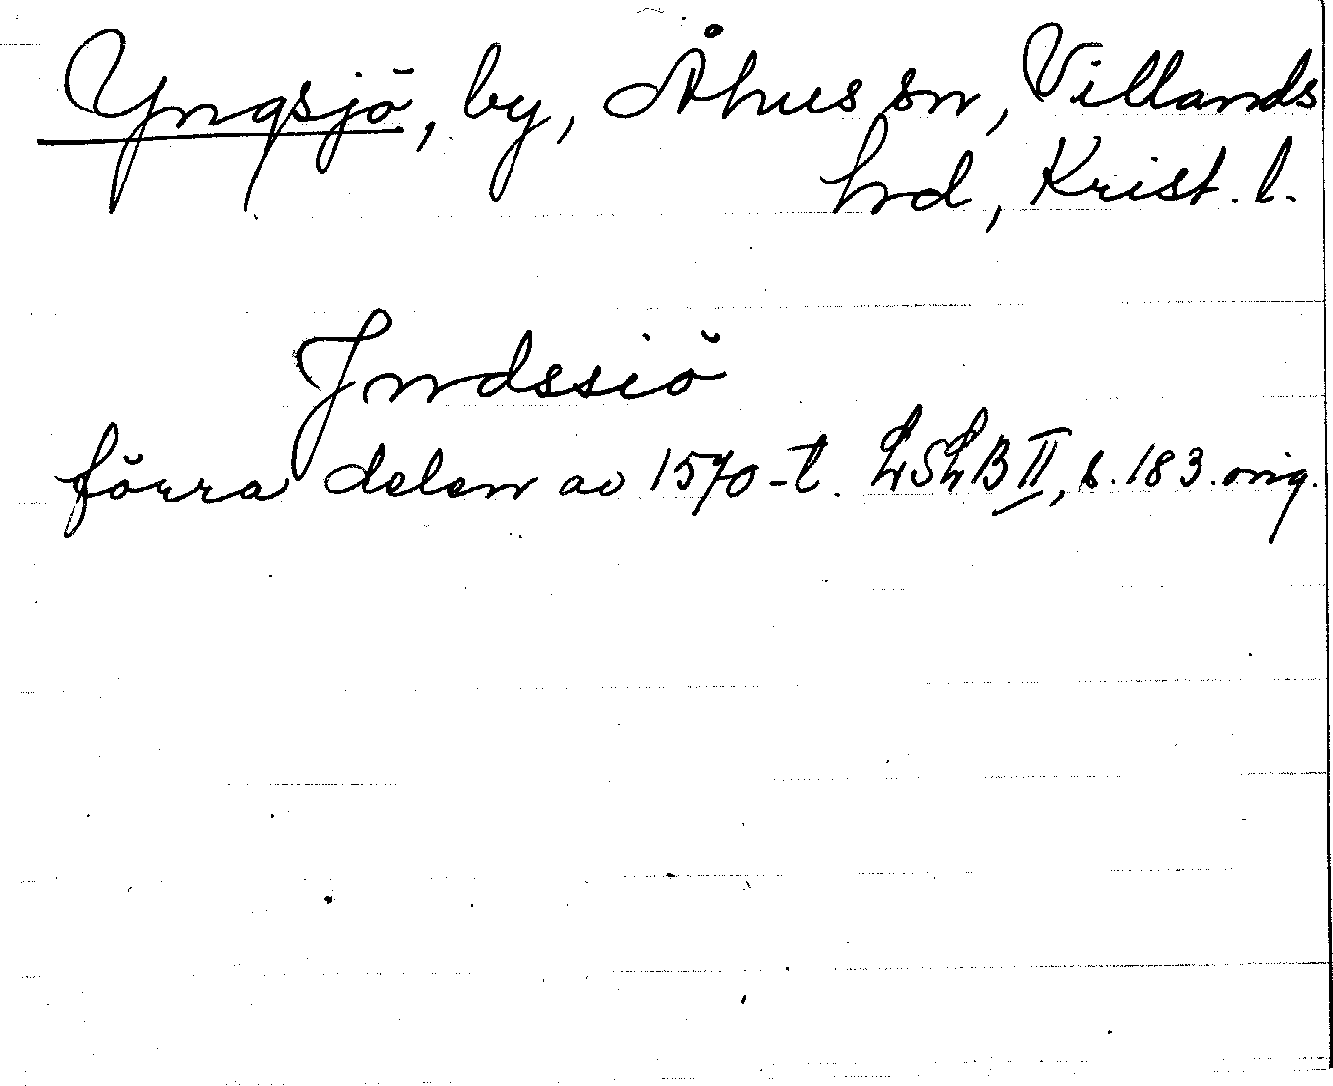 Yngsjö, by, Åhus sn, Villands
hrd, Krist. l.
Jndssiö
förra delen av 1570-t. LSLB II, s. 183. orig.